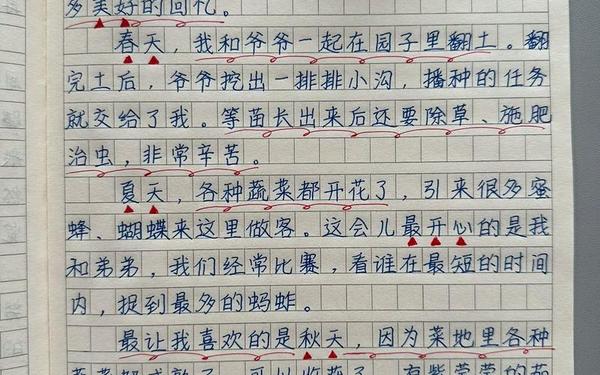 多美好的回礼。
春天，我和爷爷一起在园子里翻土。翻
完土后，爷爷挖出一排排小沟，播种的任务
就交给了我。等苗长出来后还要除草、施肥
治虫，非常辛苦。
夏天，各种蔬菜都开花了，引来很多蜜
蜂、蝴蝶来这里做客。这会儿最开心的是我
和弟弟，我们经常比赛，看谁在最短的时间
内，捉到最多的蚂蚱。
最让我喜欢的是秋天，因为菜地里各种